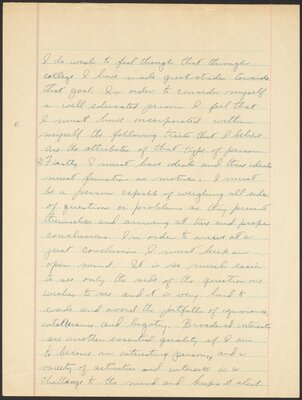 I do wish to feel though that through
college I have made great strides towards
that goal. In order to consider myself
a well educated person I feel that
I must have incorporated within
myself the following traits that I believe
are the attributes of that type of person.
Firstly I must have ideals and these ideals
must function as motives. I must
be a person capable of weighing all sides
of questions or problems as they present
themselves and arriving at true and proper
conclusions. In order to arrive at a
just conclusion I must keep an
open mind. It is so much easier
to see only the side of the question one
wishes to see and it is very hard to
evade and avoid the pitfalls of ignorance,
intolerance and bigotry. Broadened interests
are another essential quality if I am
to become an interesting person, and a
variety of activities and interests is a
challenge to the mind and keeps it alert.